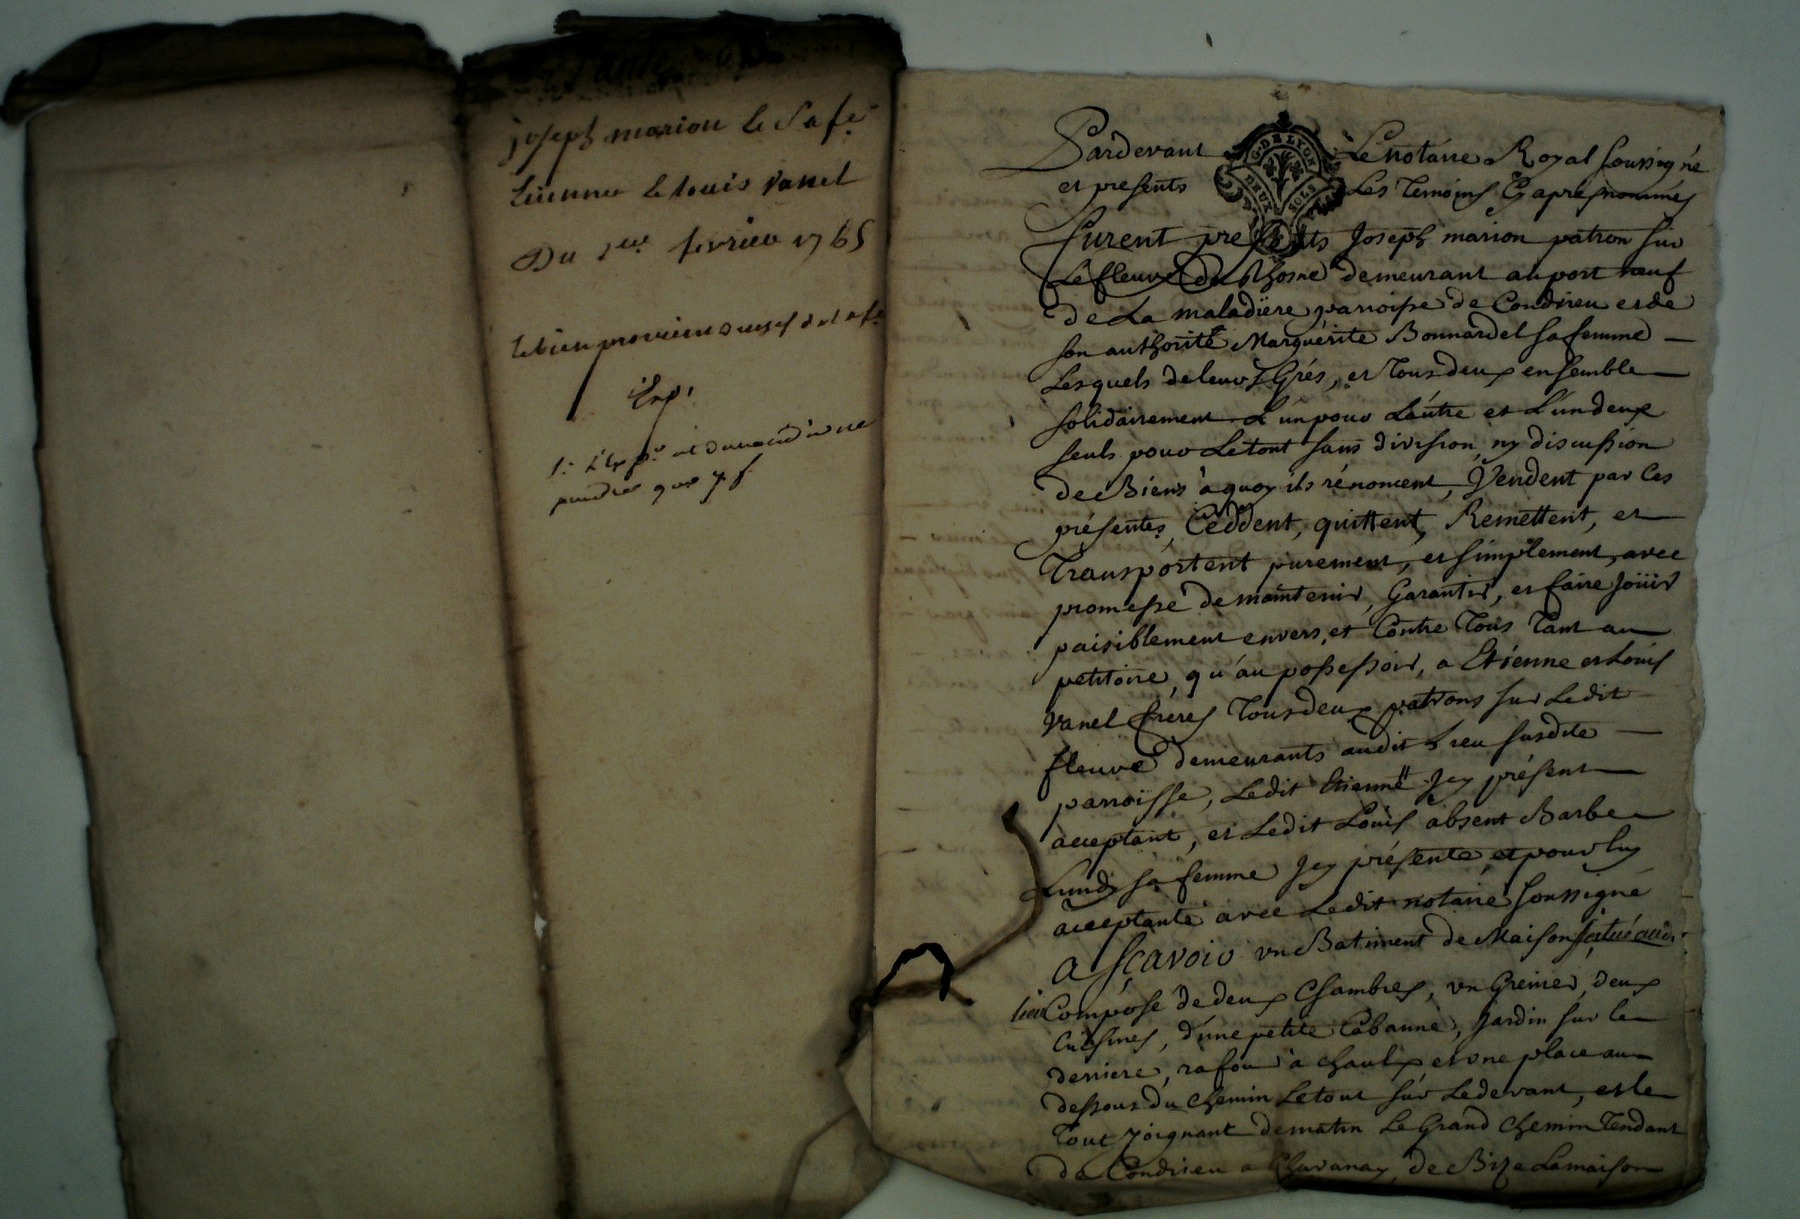 joseph marion & Sa fe
Etienne & louis Vanel
Du 1er fevrier 1765
Pardevant Le notaire Royal soussigné
et presents Les Temoins Cy apres nommés
G. DE LYON
DEUX SOLS
furent presents Joseph marion patron sur
Le fleuve du Rhosne demeurant au port neuf
de La maladiere parroisse de Condrieu et de
son authorité Marguerite Bonnardel sa femme
Lesquels de leurs Grés, et Tous deux ensemble
solidairement L'un pour L'autre et L'un deux
seuls pour Le tout sans division, ny discussion
de Biens à quoy ils rénoncent, Vendent par Ces
présentes, Ceddent, quittent, Remettent, et
Transportent purement, et simplement, avec
promesse de maintenir, Garantir, et faire joüir
paisiblement envers, et Contre Tous Tant au
petitoire, qu'au possessoir, a Etienne et Loüis
Vanel freres Tous deux patrons sur Ledit
fleuve demeurants audit Lieu susdite
parroisse, Ledit Etienne Jcy présent
acceptant, et Ledit Loüis absent Barbe
Lundy sa femme Jcy présente, et pour luy
acceptante avec Ledit notaire soussigné
a sçavoir un Batiment de Maison situé audit
lieu Composé de deux Chambres, un Grenier, deux
Cuisines, d'une petite Cabanne, Jardin sur le
derriere, rafour à chaux, et une place au
dessous du chemin Le tout sur Le devant, et le
Tout joignant de matin Le Grand chemin Tendant
de Condrieu a Chavanay, de Bize La maison